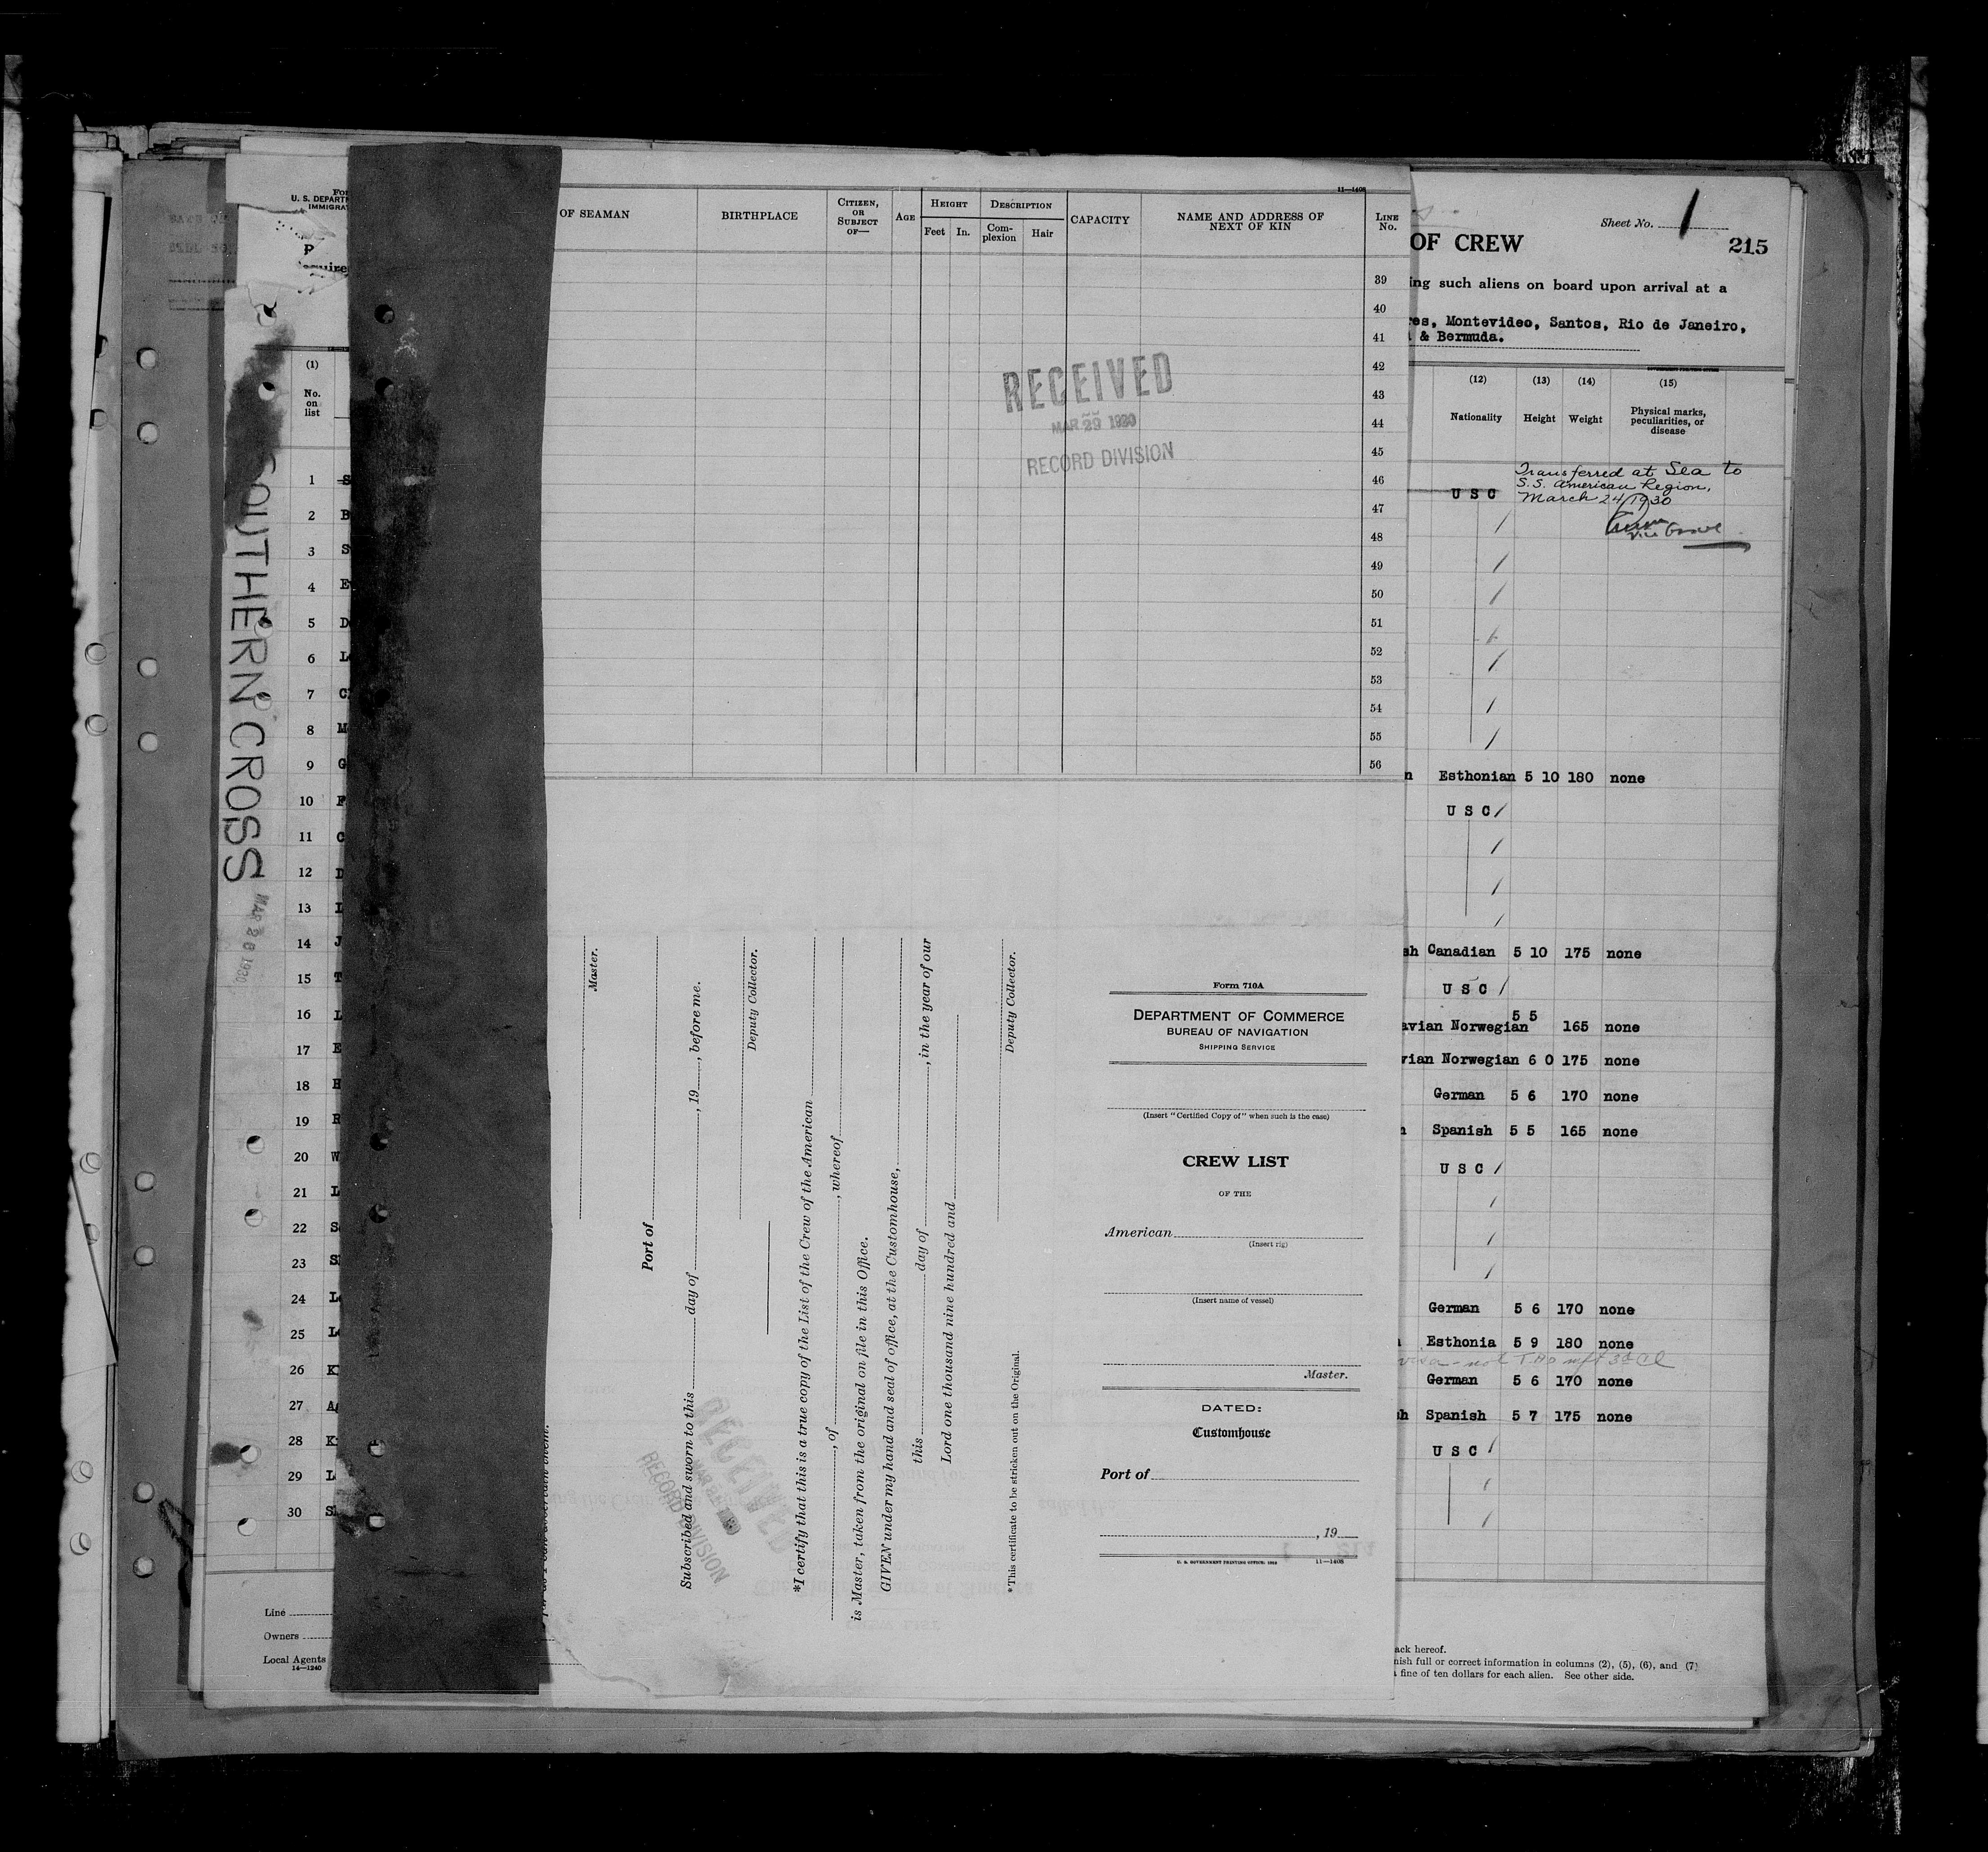 For
U. S. DEPARTM
IMMIGRAT
R
equire
(1)
No.
on
list
1 S
2 B
3 S
4 E
5 D
6 L
7 C
8 M
9 G
10 F
11 C
12 D
13 L
14 J
15 T
16 L
17 E
18 H
19 R
20 W
21 L
22 S
23 S
24 L
25 L
26 K
27 A
28 K
29 L
30 S
Line
Owners
Local Agents
14—1240
SOUTHERN CROSS
MAR 26 1930
11—1408
OF SEAMAN
BIRTHPLACE
CITIZEN,
OR
SUBJECT
OF—
AGE
HEIGHT
Feet In.
DESCRIPTION
Com-
plexion
Hair
CAPACITY
NAME AND ADDRESS OF
NEXT OF KIN
LINE
No.
39
40
41
42
43
44
45
46
47
48
49
50
51
52
53
54
55
56
RECEIVED
MAR 29 1930
RECORD DIVISION
Master.
Port of
Subscribed and sworn to this day of , 19 , before me.
Deputy Collector.
*I certify that this is a true copy of the List of the Crew of the American
, of , whereof
is Master, taken from the original on file in this Office.
GIVEN under my hand and seal of office, at the Customhouse,
this day of , in the year of our
Lord one thousand nine hundred and
Deputy Collector.
*This certificate to be stricken out on the Original.
RECEIVED
RECORD DIVISION
Form 710A
DEPARTMENT OF COMMERCE
BUREAU OF NAVIGATION
SHIPPING SERVICE
(Insert "Certified Copy of" when such is the case)
CREW LIST
OF THE
American
(Insert rig)
(Insert name of vessel)
Master.
DATED:
Customhouse
Port of
, 19
U. S. GOVERNMENT PRINTING OFFICE: 11—1408
Sheet No. 1
OF CREW 215
ing such aliens on board upon arrival at a
res, Montevideo, Santos, Rio de Janeiro,
& Bermuda.
(12) (13) (14) (15)
Nationality Height Weight Physical marks,
peculiarities, or
disease
Transferred at Sea to
S.S. American Region,
March 24/1930
U S C
n Esthonian 5 10 180 none
U S C
sh Canadian 5 10 175 none
U S C
5 5
avian Norwegian 165 none
vian Norwegian 6 0 175 none
German 5 6 170 none
Spanish 5 5 165 none
U S C
German 5 6 170 none
Esthonia 5 9 180 none
visa - not
German 5 6 170 none
h Spanish 5 7 175 none
U S C
ack hereof.
nish full or correct information in columns (2), (5), (6), and (7)
fine of ten dollars for each alien. See other side.